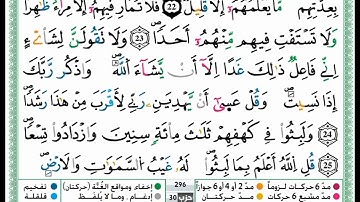 بِعِدَّتِهِم مَّا يَعْلَمُهُمْ إِلَّا قَلِيلٌ ۗ 22 فَلَا تُمَارِ فِيهِمْ إِلَّا مِرَآءً ظَٰهِرًا
وَلَا تَسْتَفْتِ فِيهِم مِّنْهُمْ أَحَدًا 23 وَلَا تَقُولَنَّ لِشَا۟ىْءٍ
إِنِّى فَاعِلٌ ذَٰلِكَ غَدًا إِلَّآ أَن يَشَآءَ ٱللَّهُ ۚ وَٱذْكُر رَّبَّكَ
إِذَا نَسِيتَ وَقُلْ عَسَىٰٓ أَن يَهْدِيَنِ رَبِّى لِأَقْرَبَ مِنْ هَٰذَا رَشَدًا
24 وَلَبِثُوا۟ فِى كَهْفِهِمْ ثَلَٰثَ مِا۟ئَةٍ سِنِينَ وَٱزْدَادُوا۟ تِسْعًا
25 قُلِ ٱللَّهُ أَعْلَمُ بِمَا لَبِثُوا۟ ۖ لَهُۥ غَيْبُ ٱلسَّمَٰوَٰتِ وَٱلْأَرْضِ ۖ
مدّ 6 حركات لزوماً مدّ 2 أو 4 أو 6 جوازاً 296 إخفاء ومواقع الغُنَّة (حركتان) تفخيم
مدّ مشبع 6 حركات مدّ حركتان حزب 30 إدغام، وما لا يُلفظ قلقلة